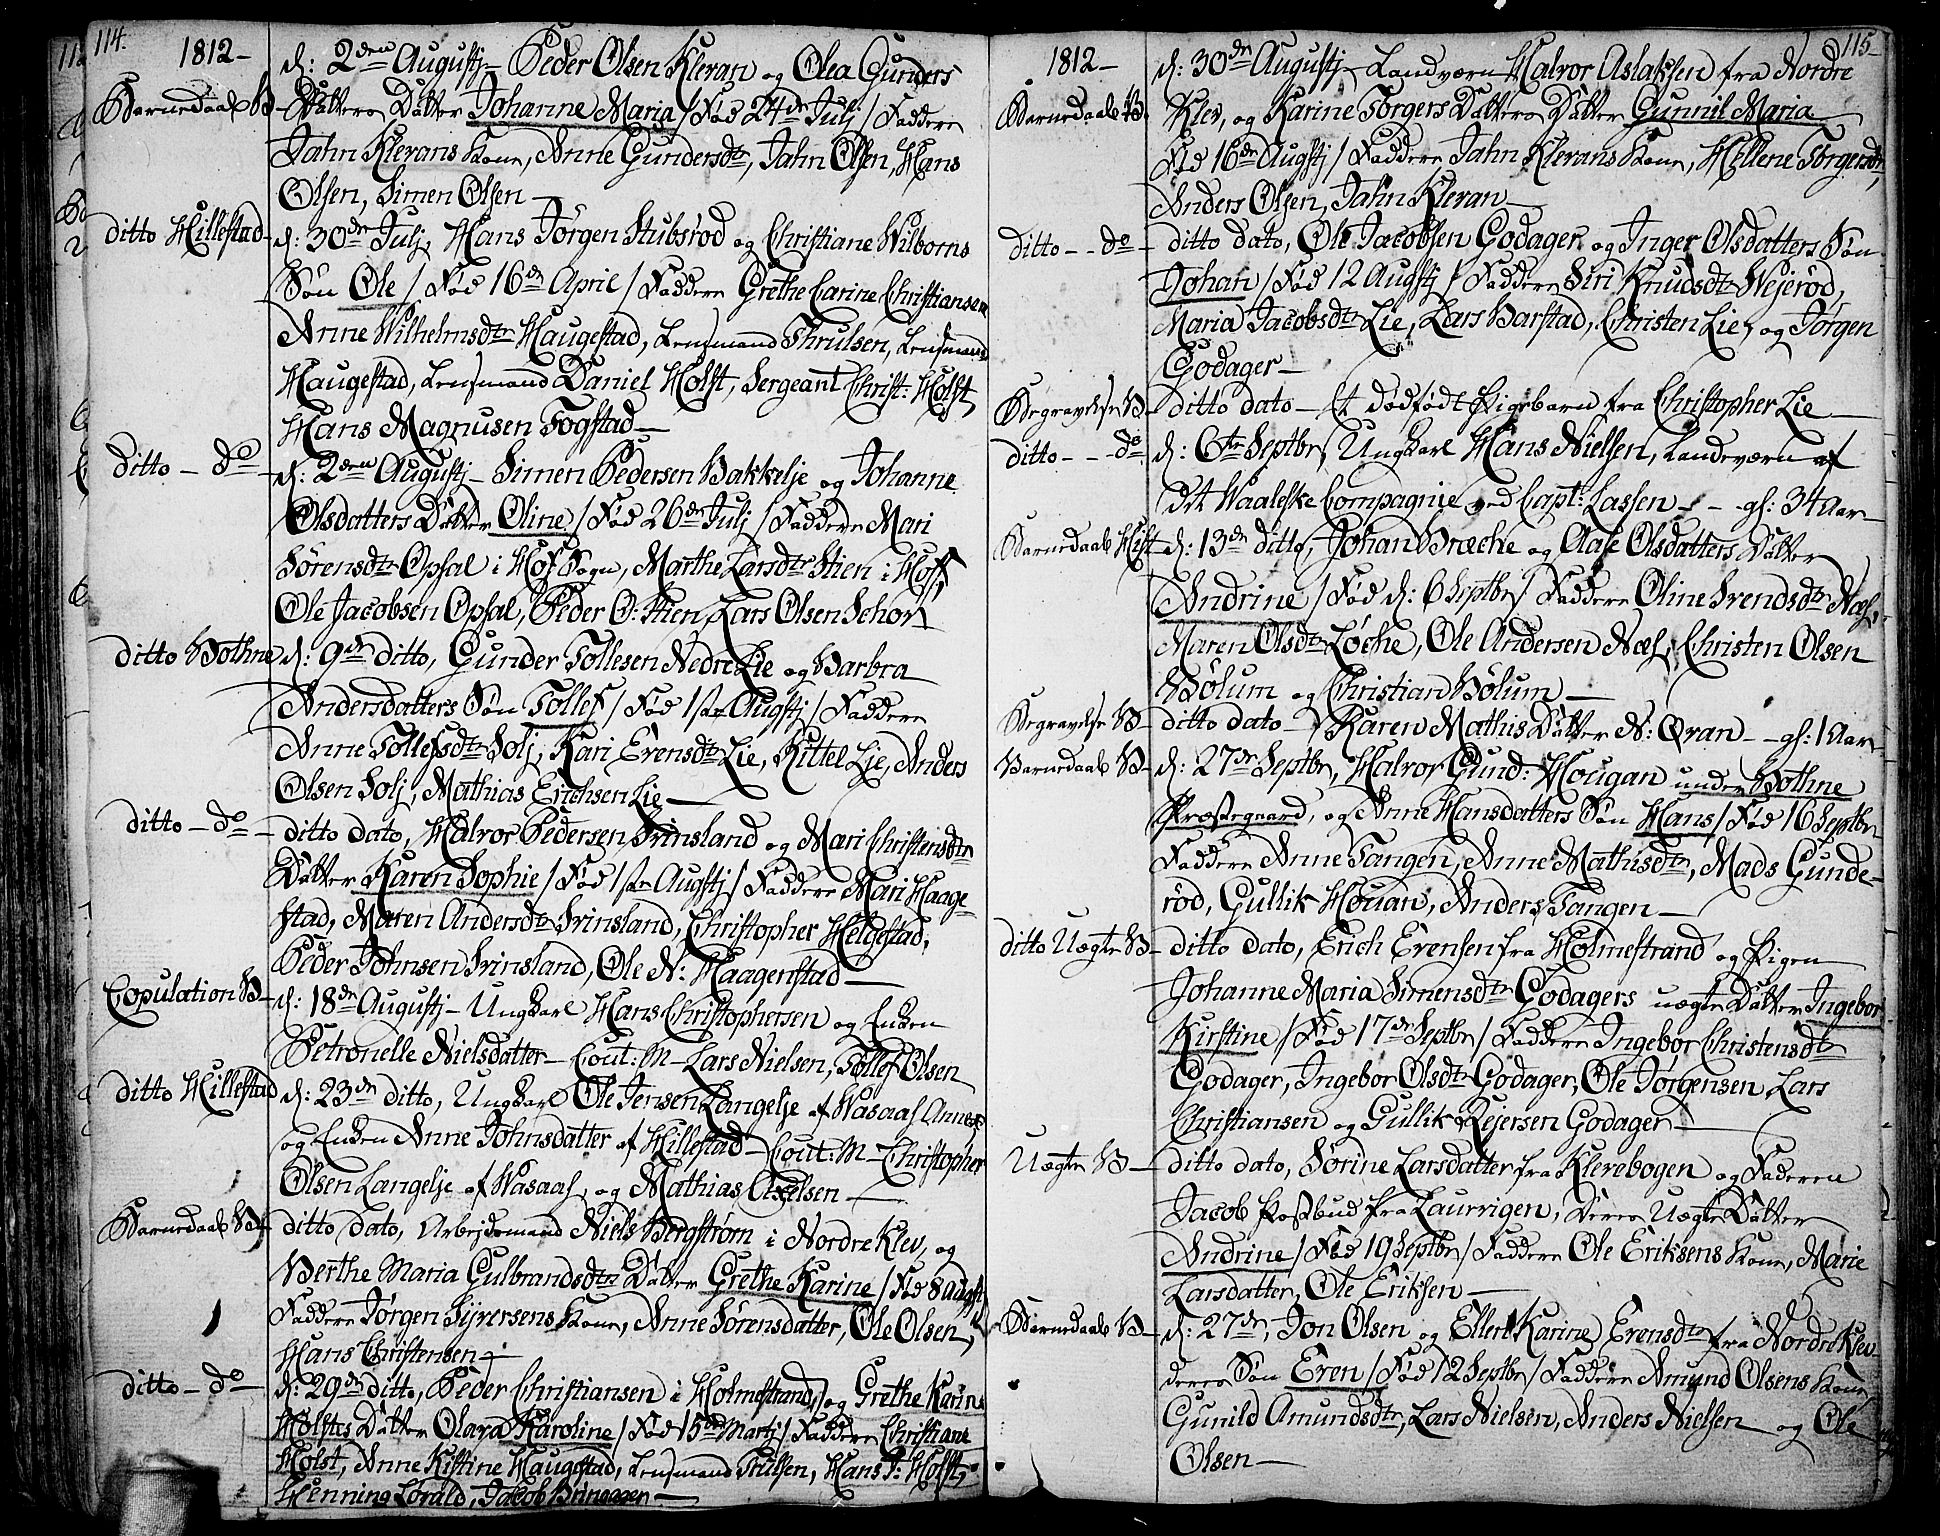 114.
1812-
Barnedaab B-
d: 2den Augustj- Peder Olsen Kleran og Olea Gunders
Datters Datter Johanne Maria / Fød 24de Julj / Faddere
Jahn Klerans Kone, Anne Gundersdtr, Jahn Olsen, Hans
Olsen, Simen Olsen -
ditto Hillestad-
d: 30de Julj, Hans Jørgen Stubsrød og Christiane Wilborns
Søn Ole / Fød 16de April / Faddere Grethe Carine Christiansen
Anne Wilhelmsdtr Haugestad, Lensmand Thrulsen, Lensmand
Haugestad, Lensmand Daniel Holst, Sergeant Christ: Holst,
Hans Magnusen Togstad-
ditto - do -
d: 2den Augustj- Simen Pedersen Bakkelje og Johanne
Olsdatters Datter Oline / Fød 26de Julj / Faddere Mari
Sørensdtr Opsal i Hof Sogn, Marthe Larsdtr Stien i Hoff,
Ole Jacobsen Opsal, Peder O: Stien, Lars Olsen Schor
ditto Bothne
d: 9de ditto, Gunder Tollesen Nedre Lie og Barbra
Andersdatters Søn Tollef / Fød 1ste Augstj / Faddere
Anne Tollefsdtr Solj, Kari Evensdtr Lie, Kittel Lie, Anders
Olsen Solj, Mathias Erichsen Lie -
ditto - do -
ditto dato, Halvor Pedersen Srinsland og Mari Christensdtr
Datter Karen Sophie / Fød 1ste Augstj / Faddere Mari Haage-
stad, Maren Andersdtr Srinsland, Christopher Helgestad,
Peder Johnsen Srinsland, Ole N: Haagenstad -
Copulation B-
d: 18de Augustj- Ungkarl Hans Christophersen og Enken
Petronelle Nielsdatter- Cout: M- Lars Nielsen, Tollef Olsen
ditto Hillestad
d: 23de ditto, Ungkarl Ole Jensen Langelje af Wasaas Annex
og Enken Anne Johnsdatter af Hillestad- Cout: M- Christopher
Olsen Langelje af Wasaas, og Mathias Axelsen -
Barnedaab B-
ditto dato, Arbejdsmand Niels Bergstrøm i Nordre Klev, og
Berthe Maria Gulbrandsdtr Datter Grethe Karine / Fød 8 Augst
Faddere Jørgen Syversens Kone, Anne Sørensdatter, Ole Olsen,
Hans Christensen -
ditto - do -
d: 29de ditto, Peder Christiansen i Holmestrand, og Grethe Karine
Holstes Datter Olava Karoline / Fød 15de Martj / Faddere Christiane
Holst, Anne Kistine Haugestad, Lensmand Trulsen, Hans J: Holst,
Henning Lorald, Jacob Bringager -
115-
1812-
Barnedaab B.
d: 30de Augustj- Landværn Halvor Aslaksen fra Nordre
Klev, og Karine Torgers Datters Datter Gunnil Maria
Fød 16de Augstj / Faddere Jahn Klerans Kone, Hellene Torgersdtr,
Anders Olsen, Jahn Kleran -
ditto - - do -
ditto dato, Ole Jacobsen Godager og Inger Olsdatters Søn
Johan / Fød 12 Augstj / Faddere Siri Knudsdtr Wejerød,
Maria Jacobsdtr Lie, Lars Barstad, Christen Lie, og Jørgen
Godager -
Begravelse B-
ditto dato - Et dødfødt Pigebarn fra Christopher Lie -
ditto - - do
d: 6te Septbr, Ungkarl Hans Nielsen, Landeværn af
det Waaleske Compagnie ved Capt: Lassen - - gl: 34 Aar-
Barnedaab Hist
d: 13de ditto, Johan Bræche og Aase Olsdatters Datter
Andrine / Fød d: 6 Septbr / Faddere Oline Svendsdtr Næs,
Maren Olsdtr Løche, Ole Andersen Næs, Christen Olsen
Bølum og Christian Bølum -
Begravelse B-
ditto dato - Karen Mathis Datter N: Qvan - - gl: 1 Aar-
Barnedaab B-
d: 27de Septbr, Halvor Gund: Hougan under Bothne
Præstegaard, og Anne Hansdatters Søn Hans / Fød 16 Septbr
Faddere Anne Tangen, Anne Mathisdtr, Mads Gunde-
rød, Gullik Houan, Anders Tangen -
ditto Uægte B-
ditto dato, Erich Evensen fra Holmestrand og Pigen
Johanne Maria Simensdtr Godagers uægte Datter Ingebor
Kirstine / Fød 17de Septbr / Faddere Ingebor Christensdtr
Godager, Ingebor Olsdtr Godager, Ole Jørgensen Lars
Christiansen og Gullik Rejersen Godager -
Uægte B-
ditto dato, Sørine Larsdatter fra Klevebogen og Faderen
Jacob Postbud fra Laurrigen, Deres Uægte Datter
Andrine / Fød 19 Septbr / Faddere Ole Eriksens Kone, Marie
Larsdatter, Ole Eriksen -
Barnedaab B-
d: 27de, Jon Olsen og Ellen Karine Evensdtr fra Nordre Klev
deres Søn Even / Fød 12 Septbr / Faddere Amund Olsens Kone
Gunild Amundsdtr, Lars Nielsen, Anders Nielsen og Ole
Olsen -